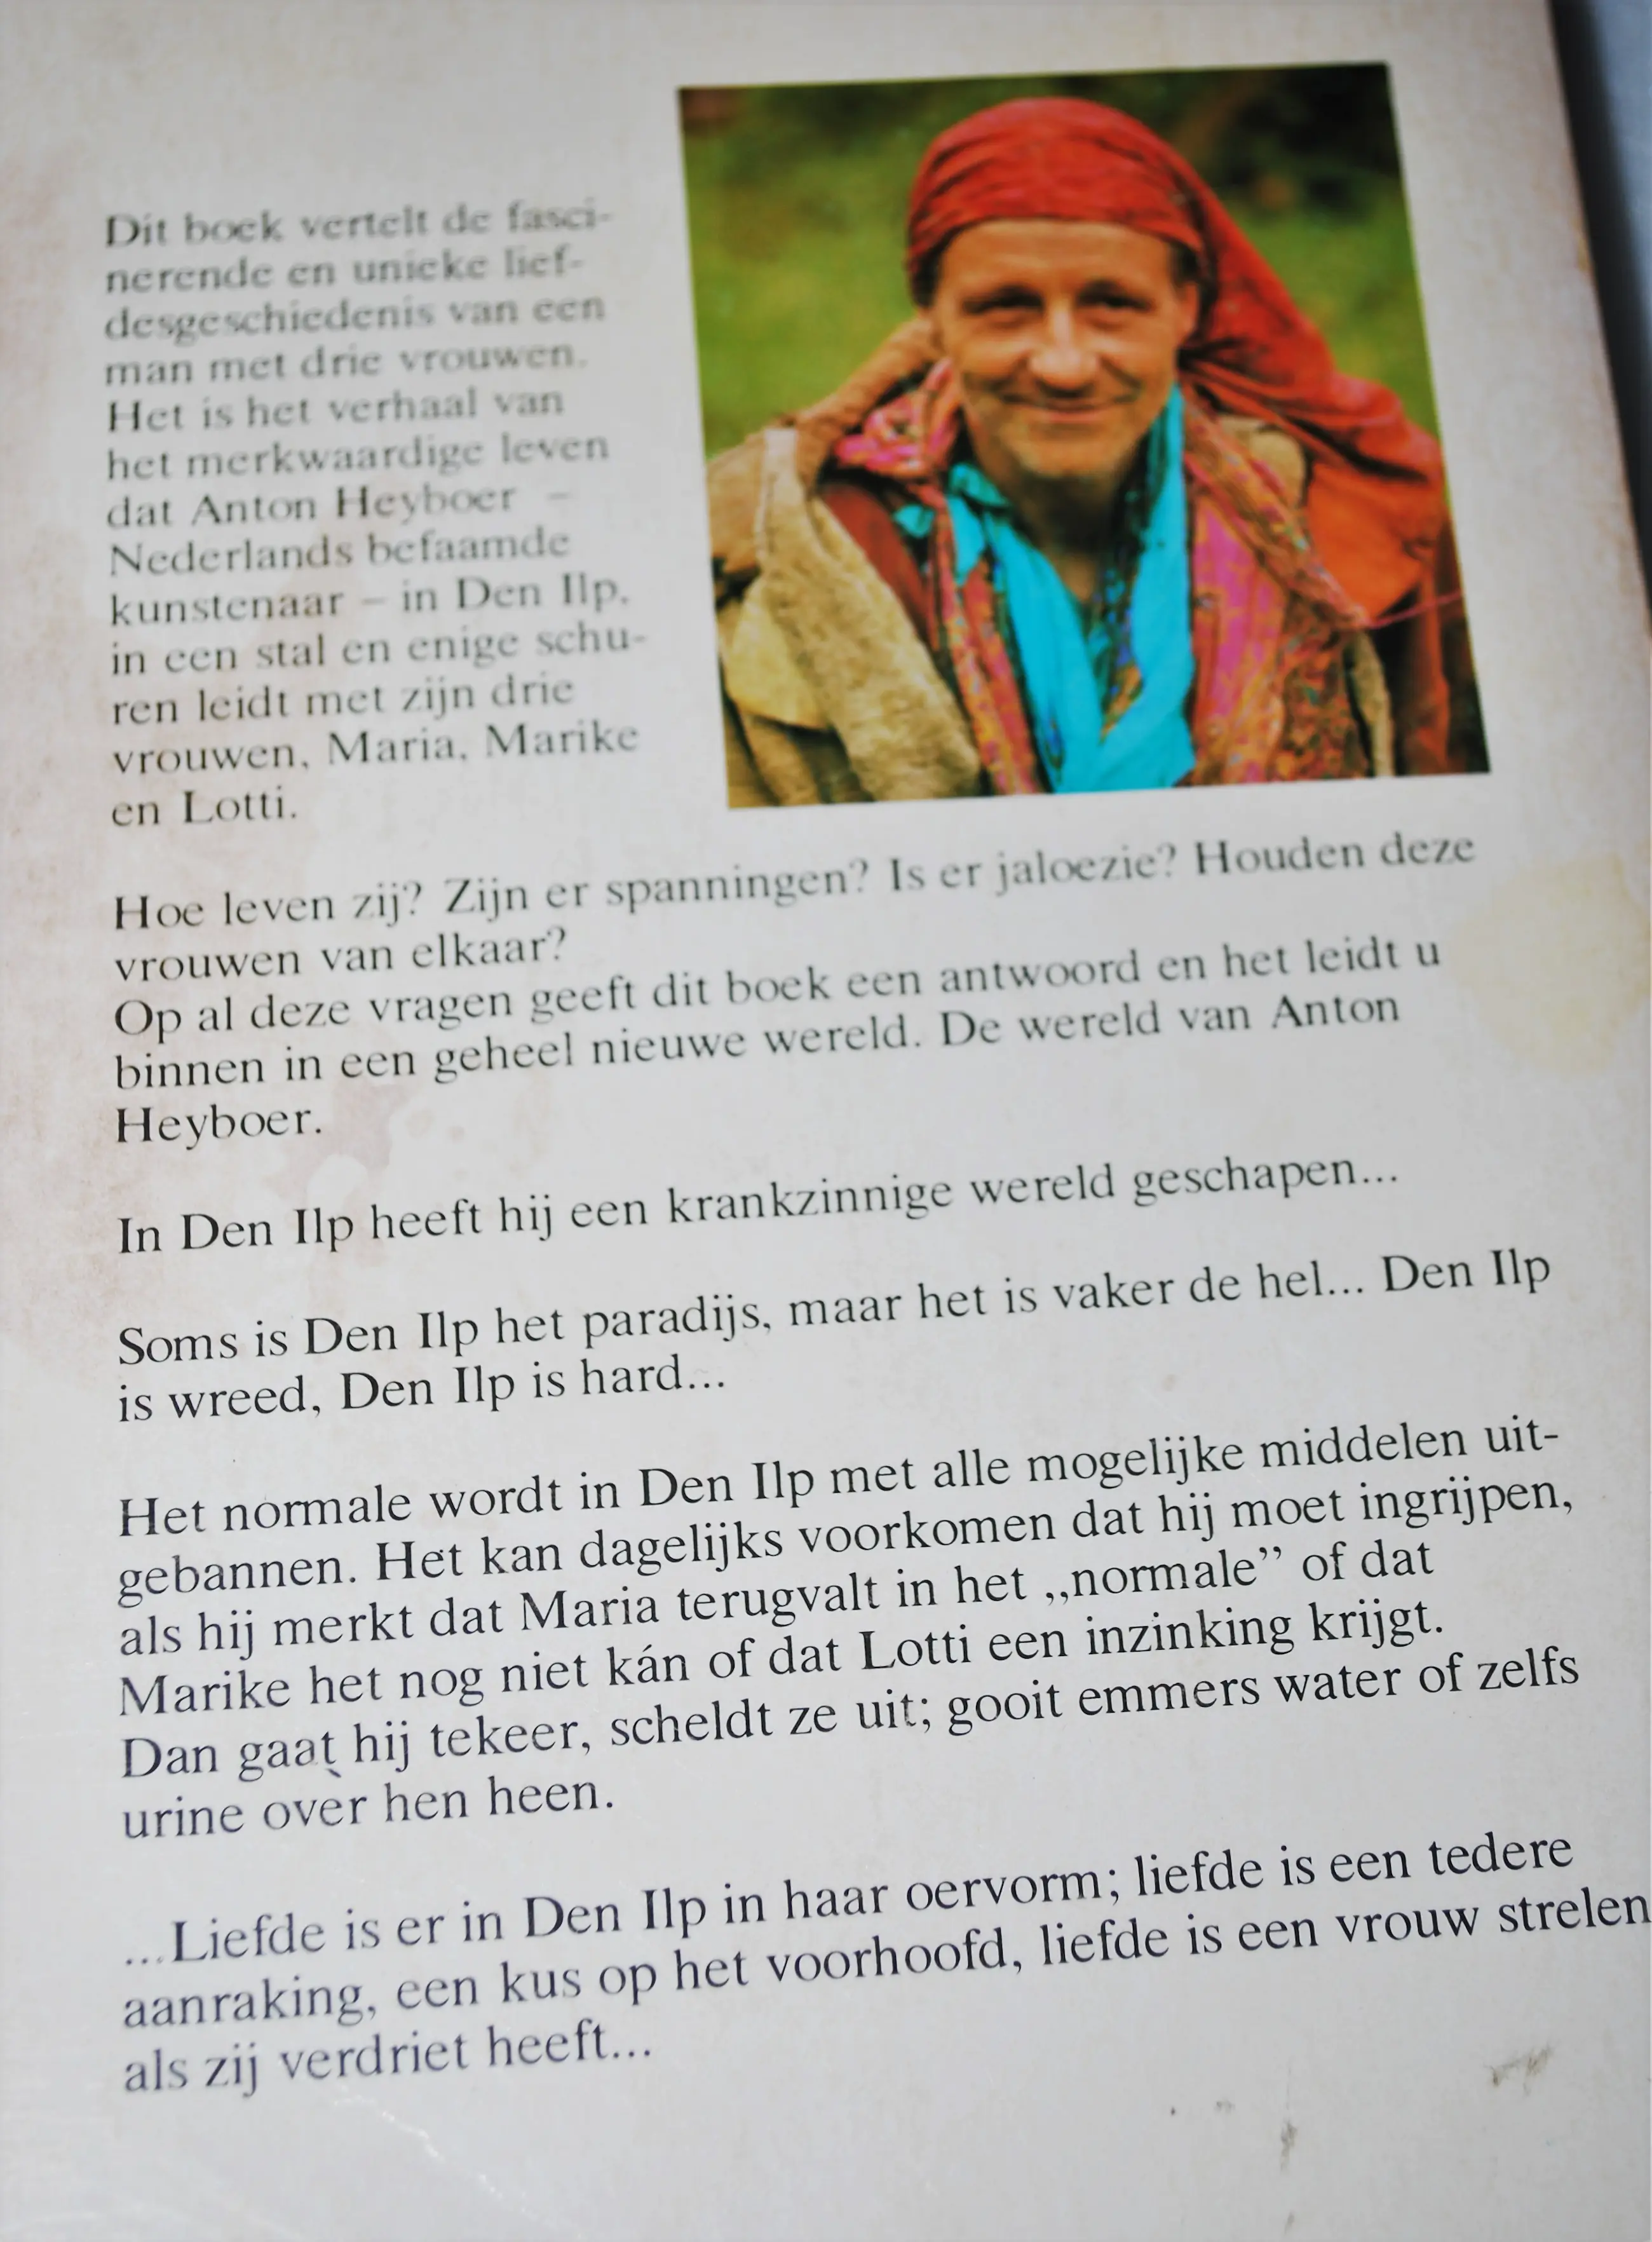 Dit boek vertelt de fasci-
nerende en unieke lief-
desgeschiedenis van een
man met drie vrouwen.
Het is het verhaal van
het merkwaardige leven
dat Anton Heyboer –
Nederlands befaamde
kunstenaar – in Den Ilp,
in een stal en enige schu-
ren leidt met zijn drie
vrouwen, Maria, Marike
en Lotti.
Hoe leven zij? Zijn er spanningen? Is er jaloezie? Houden deze
vrouwen van elkaar?
Op al deze vragen geeft dit boek een antwoord en het leidt u
binnen in een geheel nieuwe wereld. De wereld van Anton
Heyboer.
In Den Ilp heeft hij een krankzinnige wereld geschapen...
Soms is Den Ilp het paradijs, maar het is vaker de hel... Den Ilp
is wreed, Den Ilp is hard...
Het normale wordt in Den Ilp met alle mogelijke middelen uit-
gebannen. Het kan dagelijks voorkomen dat hij moet ingrijpen,
als hij merkt dat Maria terugvalt in het „normale” of dat
Marike het nog niet kán of dat Lotti een inzinking krijgt.
Dan gaat hij tekeer, scheldt ze uit; gooit emmers water of zelfs
urine over hen heen.
...Liefde is er in Den Ilp in haar oervorm; liefde is een tedere
aanraking, een kus op het voorhoofd, liefde is een vrouw strelen
als zij verdriet heeft...